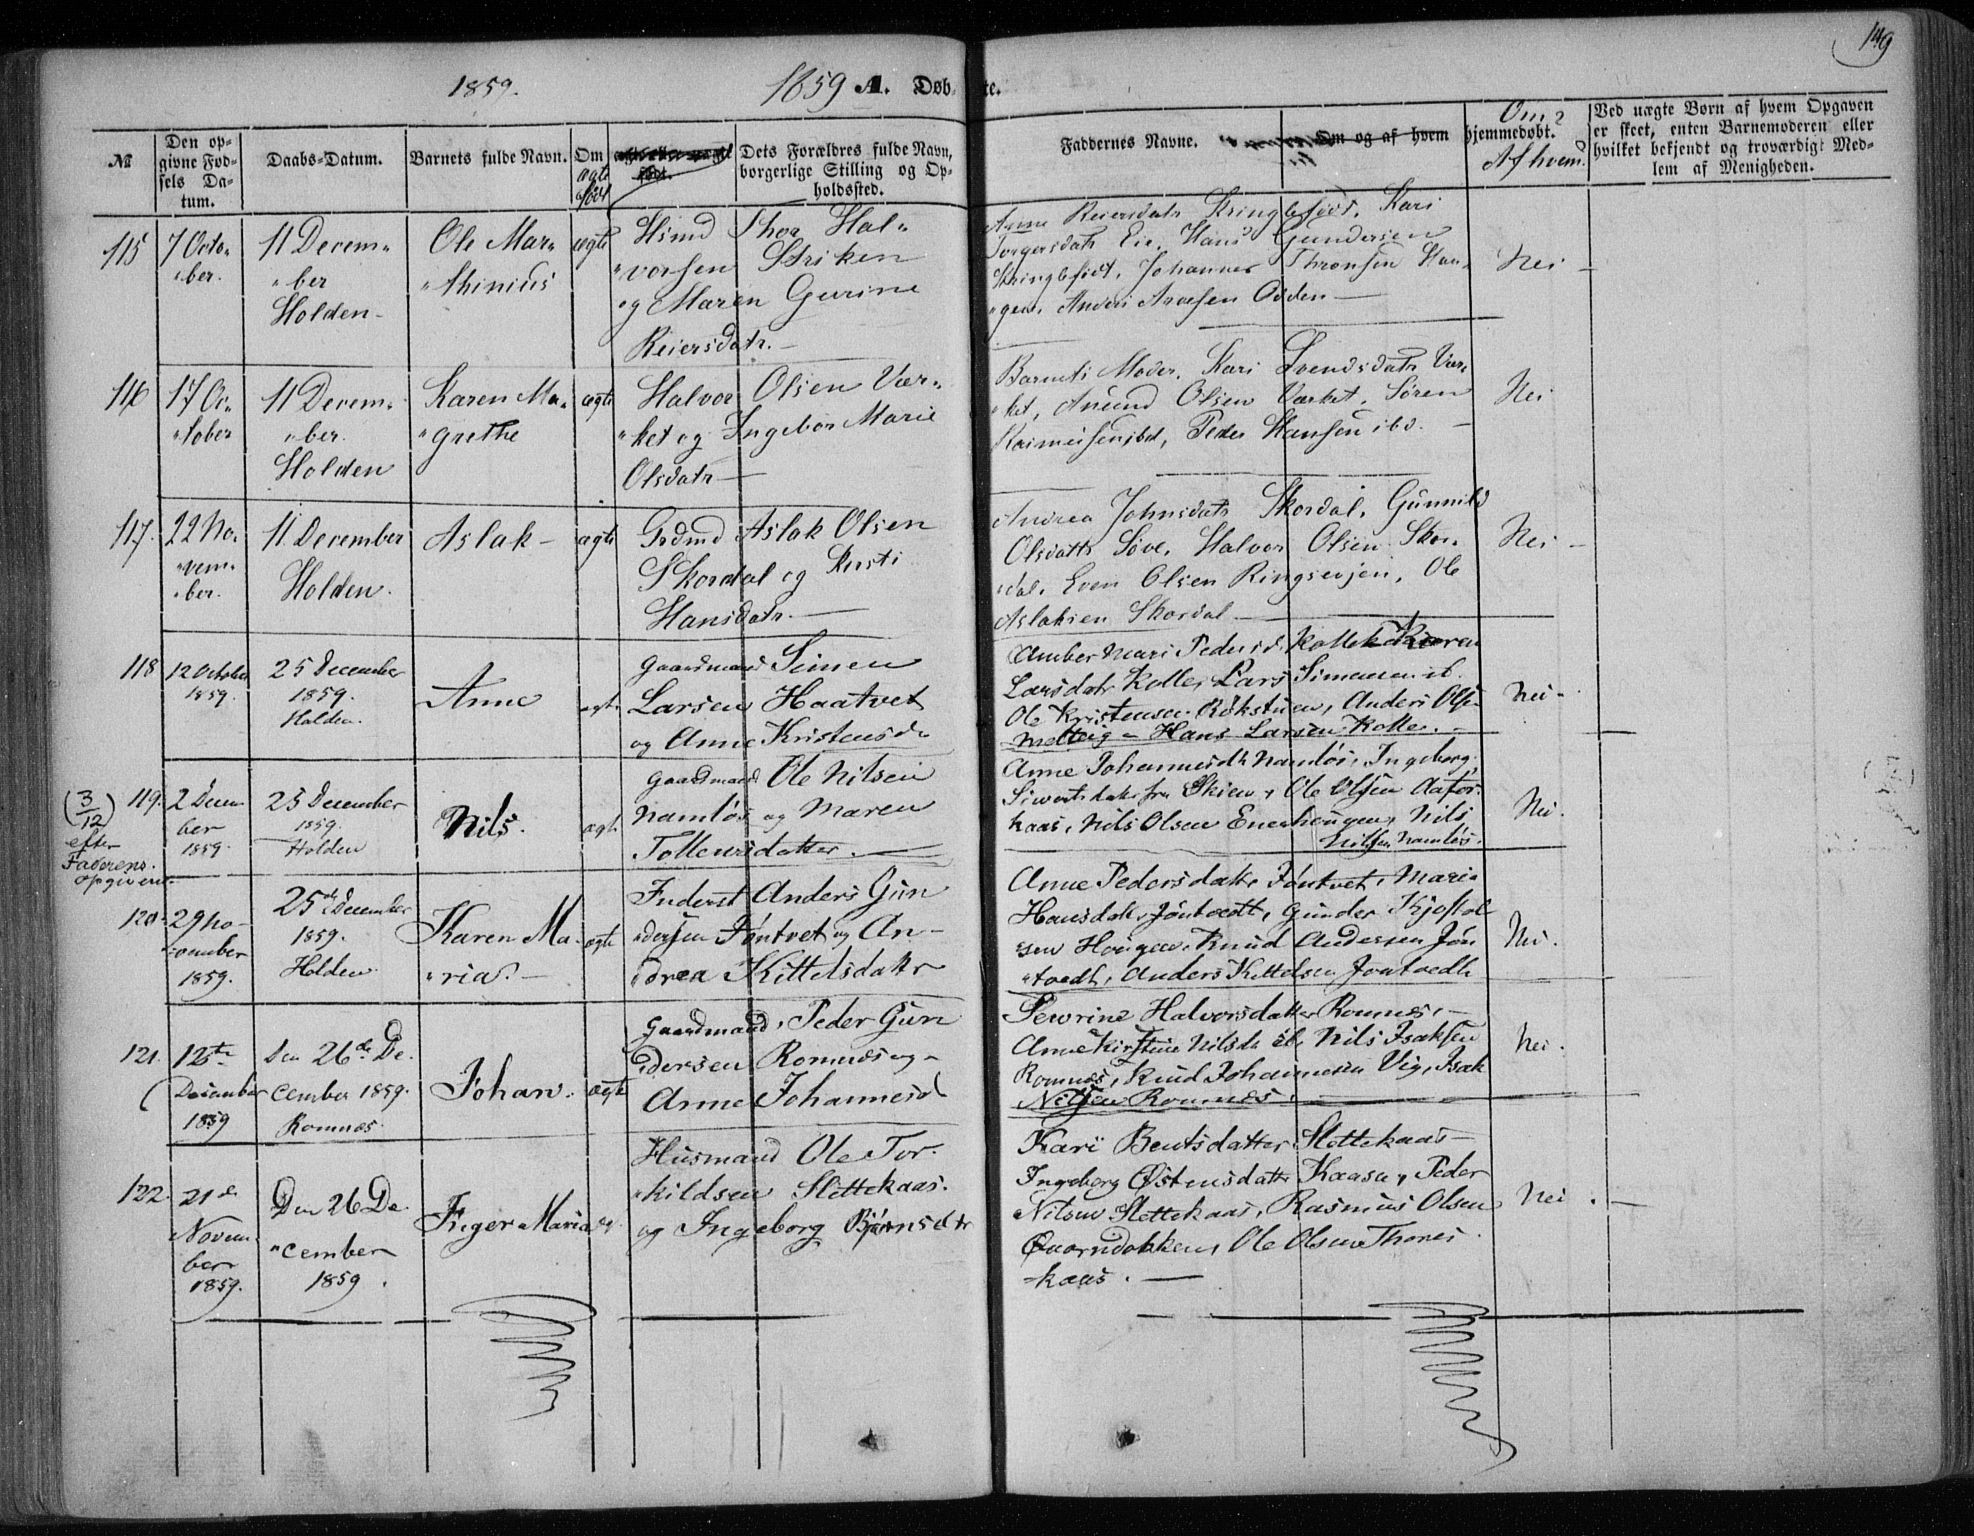 149
1859.
1859 A. Døb-te.
№
Den op-
givne Fød-
sels Da-
tum.
Daabs-Datum.
Barnets fulde Navn.
Om
ægte
født
Dets Forældres fulde Navn,
borgerlige Stilling og Op-
holdssted.
Faddernes Navne.
Om og af hvem
hjemmedøbt.
Om?
Af hvem.
Ved uægte Børn af hvem Opgaven
er skeet, enten Barnemoderen eller
hvilket bekjendt og troværdigt Med-
lem af Menigheden.
115
7 Octo-
"ber.
11 Decem"
"ber
Holden-
Ole Mar"
"thinius
ægte
Hsmd Thor Hal"
"vorsen Striken
og Maren Gurine
Reiersdatr.-
Anne Reiersdatr Kringlefødt. Kari
Torgersdatr Eie. Hans Gundersen
Kringlefødt, Johannes Thronsen Hau"
"gen, Anders Aroesen Odden
Nei -
116
17 Oc"
"tober
11 Decem"
"ber.
Holden
Karen Ma"
"grethe
ægte
Halvor Olsen Vær"
"ket og Ingebor Marie
Olsdatr
Barnets Moder. Kari Svendsdatr Vær"
"ket, Anund Olsen Værket, Søren
Rasmusen ibd, Peder Hansen ibd.
Nei
117.
22 No"
"vem"
"ber.
11 December
Holden.
Aslak -
ægte
Grdmd Aslak Olsen
Skordal og Kirsti
Hansdatr.
Andrea Johnsdatr Skordal. Gunnild
Olsdattr Søve. Halvor Olsen Skor"
"dal. Even Olsen Ringsevjen, Ole
Aslaksen Skordal
Nei -
118
12 October
1859.
25 December
1859.
Holden.
Anne
ægte
Gaardmand Simen
Larsen Haatvet
og Anne Kristensd.
Amber Mari Pedersd. Kolle Karen
Larsdatr Kolle, Lars Simensen ib.
Ole Kristensen Rökstuen, Anders Olsen
Melteig - Hans Larsen Kolle. -
Nei -
119.
(3/12)
efter
Faderens
opgivend
2 Decem
ber
1859.
25 December
1859.
Holden
Nils.
ægte
Gaardmand Ole Nilsen
Namløs og Maren
Tollevsdatter.
Anne Johannesdtr Namløs, Ingeborg
Siversdatr fra Skien, Ole Olsen Aafos-
kaas, Nils Olsen Enerhougen, Nils
Nilsen Namløs.
Nei.
120.
29 No-
vember
1859.
25de December
1859.
Holden
Karen Ma-
"ria.
ægte
Inderst Anders Gun
"dersen Jöntvet og An-
"drea Kittelsdattr
Anne Pedersdatr. Jöntvet, Maria
Hansdatr Jöntvedt, Gunder Kjøstol
"sen Hougen, Knud Andersen Jön
"tvedt, Anders Kittelsen Jontvedt
Nei.
121.
12te
December
1859
Den 26de De.
cember 1859.
Romnæs.
Johan.
ægte
Gaardmand, Peder Gun
dersen Romnæs og -
Anne Johannesd
Severine Halvorsdatter Romnæs, -
Anne Kirstine Nilsdtr ib, Nils Isaksen
Romnæs, Knud Johannesen Vig, Isak
Nilsen Romnæs.
Nei.
122.
21de
Novem
ber
1859.
Den 26 De.
"cember
1859.
Inger Maria
Husmand Ole Tor.
"kildsen Slettekaas.
og Ingeborg Björnsdtr
Kari Bentsdatter Slettekaas -
Ingeborg Östensdattr Kaasa, Peder
Nilsen Slettekaas, Rasmus Olsen
Qvarndokken, Ole Olsen Thornes
-kaas. -
Nei. -